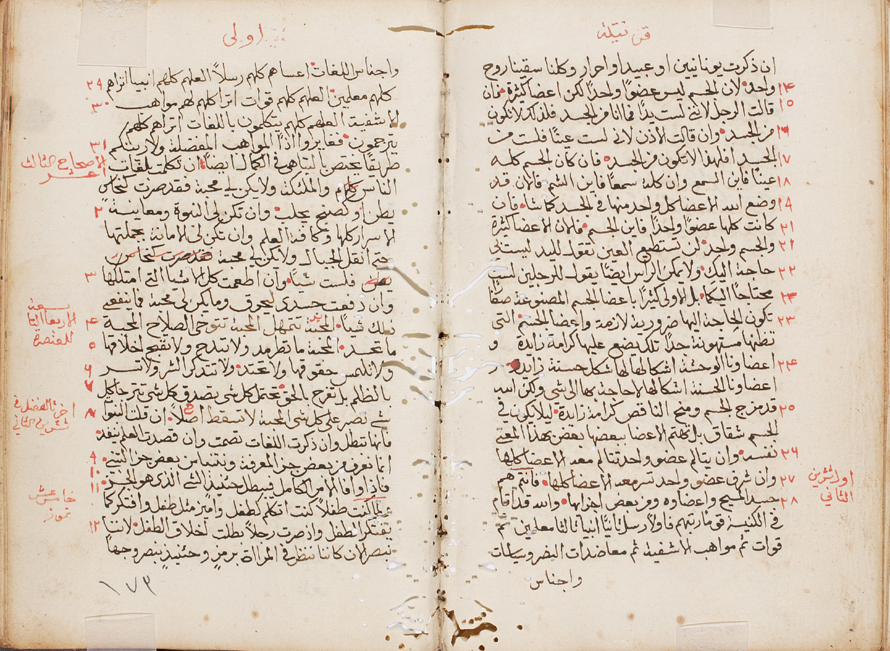 قرنتية
ان ذكرت يونانيين او عبيدا او احرار وكلنا سقينا روح
١٤ واحد لان الجسم ليس عضوا واحدا لكن اعضا كثيرة فان
١٥ قالت الرجل لانني لست يدا فما انا من الجسد فلذلك لا تكون
١٦ من الجسد وان قالت الاذن لاني لست عينا فلست من
١٧ الجسد افلهذا لا تكون من الجسد فان كان الجسم كله
١٨ عينا فاين السمع وان كله سمعا فاين الشم فالان قد
١٩ وضع الله الاعضا كل واحد منها في الجسد كما شا فان
كانت كلها عضوا واحدا فاين الجسم فالان الاعضا كثيرة
٢١ والجسم واحد لن تستطيع العين تقول لليد ليست لي
٢٢ حاجة اليك ولا يمكن الراس ايضا يقول للرجلين لست
محتاجا اليكما بل الاولى كثيرا باعضا الجسم المصنوعة
٢٣ تكون الحاجة اليها ضرورية لازمة واعضا الجسم التي
نظنها حدا تلك نضع عليها كرامة زايدة و
٢٤ اعضاونا الوحشة اشكالها لها شكل حسنه زايدة
اعضاونا الحسنة اشكالها لا حاجة بها الى شي ولكن الله
٢٥ قد مزج الجسم ومنح الناقص كرامة زايدة ليلا يكون في
الجسم شقاق بل تهتم الاعضا ببعضها بعض بهذا المعنى
٢٦ نفسه وان يتالم عضو واحد تتالم معه الاعضا كلها
٢٧ وان شرف عضو واحد تسر معه الاعضا كلها فانتم هم
٢٨ جسد المسيح واعضاوه ومن بعض اجزايها والله قد اقام
في الكنيسة قوما رتبهم فاولا رسل ثانيا انبيا ثالثا معلمين ثم
قوات ثم مواهب الاشفية ثم معاضدات
واجناس
اولى
واجناس اللغات اعساهم كلهم رسلا العلهم كلهم انبيا اتراهم
كلهم معلمين العلهم كلهم قوات اتراكلهم لهم مواهب
الاشفية العلهم كلهم يتكلمون باللغات اتراهم كلهم
يترجمون فغايروا اذا المواهب الفضلة ولاريتكم
طريقا يختص بالتناهي في الكمال ايضا ان تكلمت بلغات
الاصحاح الثالث عشر
الناس كلهم والملايكة ولا يكن لي محبة فقد صرت كنحاس
يطن او كصنج يجلب وان تكن لي النبوة ومعاينة
الاسرار كلها وكافة العلم وان تكن لي الامانة بجملتها
حتى انقل الجبال ولا يكن لي محبة
فلست شيا وان اطعمت كل الاشيا التي امتلكها
وان دفعت جسدي ليحرق وما يكن لي محبة فما ننفع
بذلك شيا المحبة تتمهل المحبة تتوخى الصلاح المحبة
ما تحسد المحبة ما تطرمد ولا تبذخ ولا تقبح اخلاقها
ولا تلتمس حقوقها ولا تحتد ولا تتذكر الشر ولا تسر
بالظلم بل تفرح بالحق تحتمل كل شي تصدق كل شي تترجا كل
شي تصبر على كل شي المحبة لا تسقط اصلا ان قلنا النبوا
فانها تبطل وان ذكرت اللغات تصمت وان قصدت العلم ينفد
انما نعرف من بعض جزو المعرفة ونتنبا من بعض جزو التنبي
فاذا وافا الامر الكامل فيبطل حينئذ الشي الذي هو الجز
كنت طفلا كنت اتكلم كطفل واميز مثل طفل وافتكر كما
يفتكر الطفل واذ صرت رجلا بطلت اخلاق الطفل لاننا
نبصر الان كاننا ننظر في المراة برمز وحينئذ نبصر وجها
١٧٣